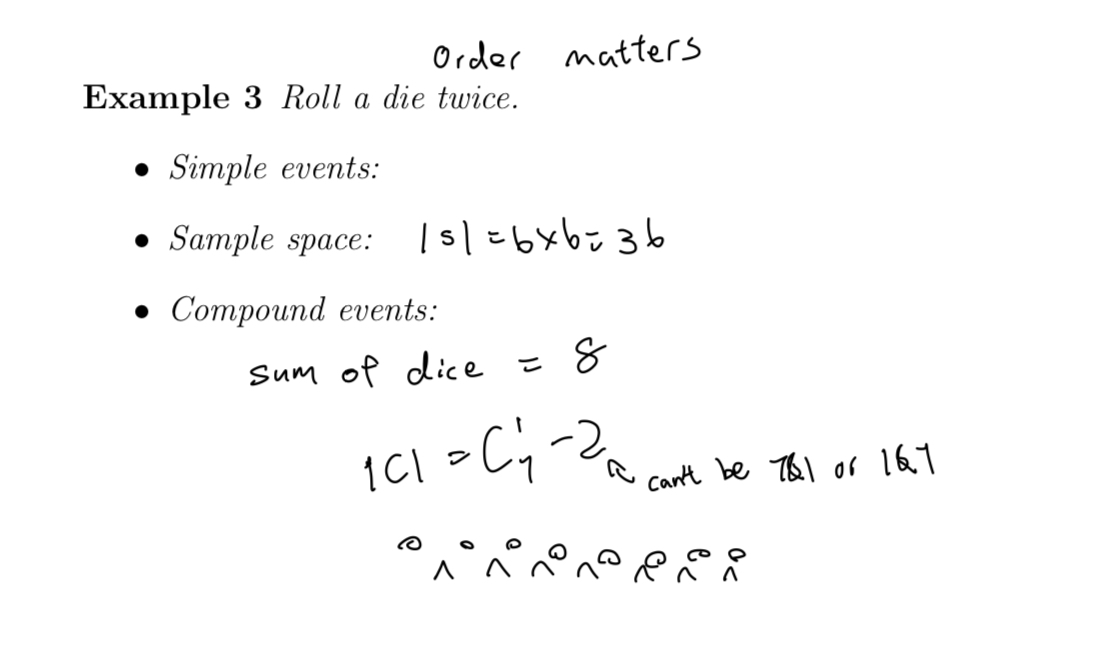 Order matters
Example 3 Roll a die twice.
• Simple events:
• Sample space: |S| = 6x6 = 36
• Compound events:
sum of dice = 8
|C| = C¹₇ - 2 can't be 7&1 or 1&7